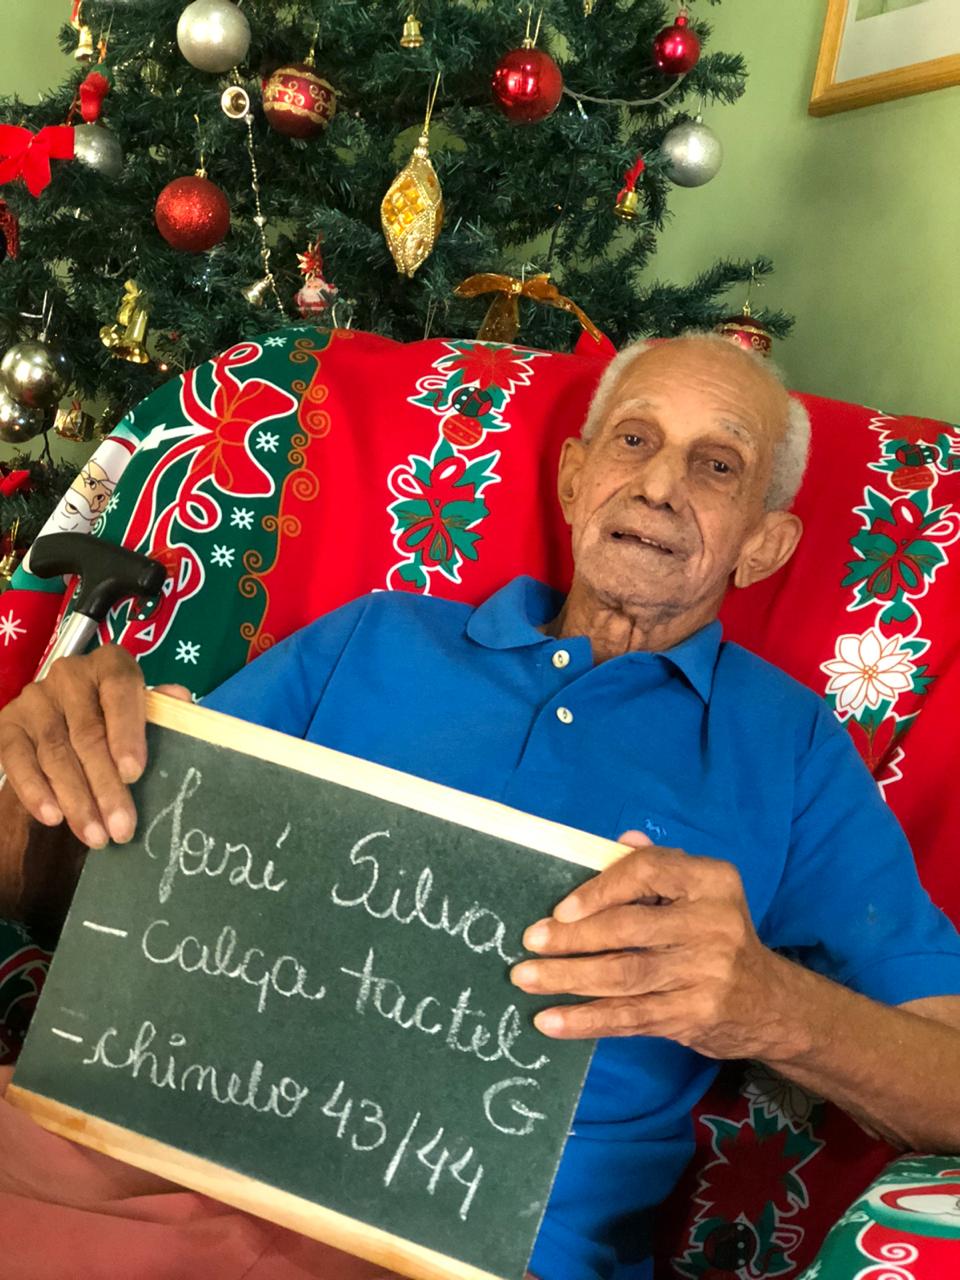 José Silva
- calça tactel
G
- chinelo 43/44